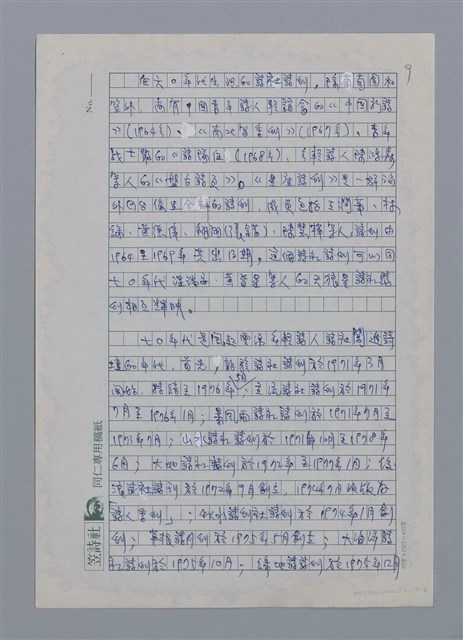 9
No.
在六〇年代出現的詩社詩刊,除葡萄園和
笠外,尚有中國青年詩人聯誼會的《中國新詩
》(1964年)、《南北笛季刊》(1967年)、
的《詩隊伍》(1968年),年輕詩人陳
等人的《盤古詩頁》。《星座詩刊》是一
外回台僑生合辦的詩刊,成員包括王潤華、林
綠、淡瑩、翱翱(張錯)、陳慧樺等人,詩刊由
1964至1969年共出13期,這個詩社詩刊可以同
七〇年代溫瑞安、黃昏星等人的天狼星詩社詩
刊相互輝映。
七〇年代是風起雲湧年輕詩人詩社闖進詩
壇的年代,首先,龍族詩社詩刊於1971年3月
開始,持續至1976年5月;主流詩社詩刊於1971年
7月至1976年1月;暴風雨詩社詩刊於1971年7月至
1973年7月;山水詩社詩刊於1971年10月至1978年
6月;大地詩社詩刊於1972年至1977年1月;後
浪詩社詩刊於1972年9月創立,1974年7月改版為
「詩人季刊」;秋水詩刊社詩刊於1974年1月創
刊;草根詩月刊於1975年5月創立;大海洋詩
社詩刊於1975年10月;綠地詩社詩刊於1975年12月
笠詩社
同仁專用稿紙